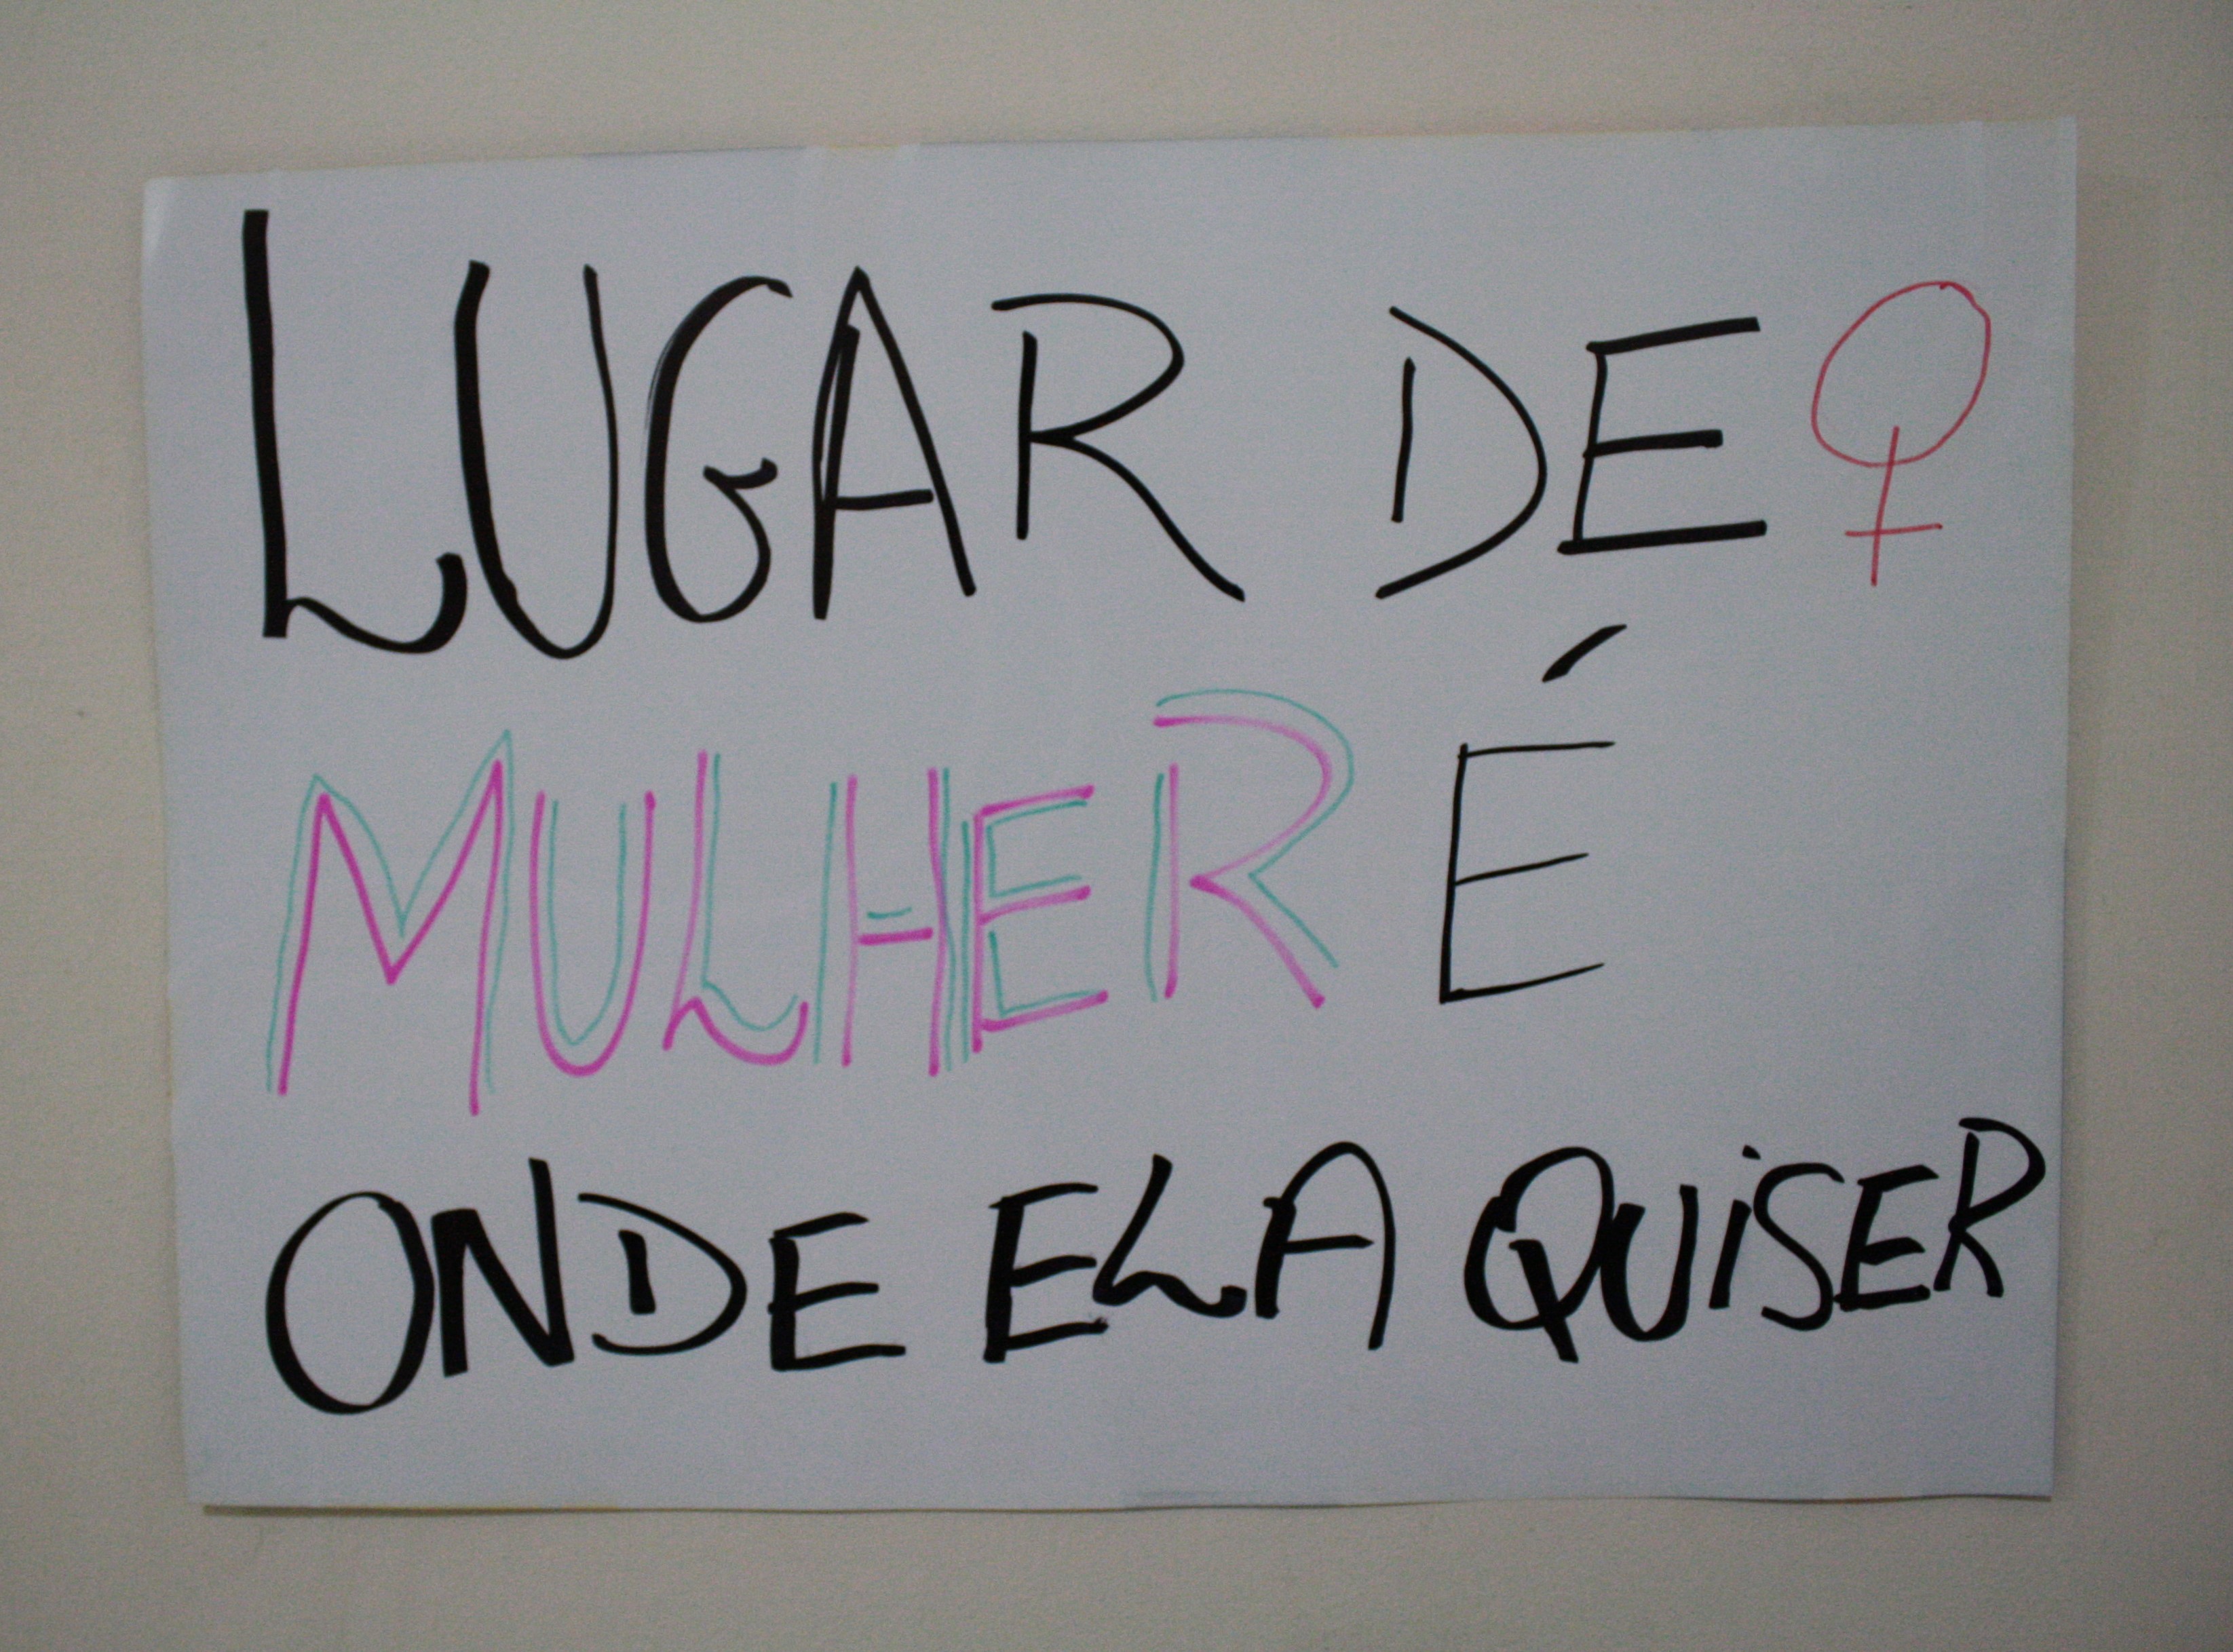 LUGAR DE ♀
MULHER É
ONDE ELA QUISER